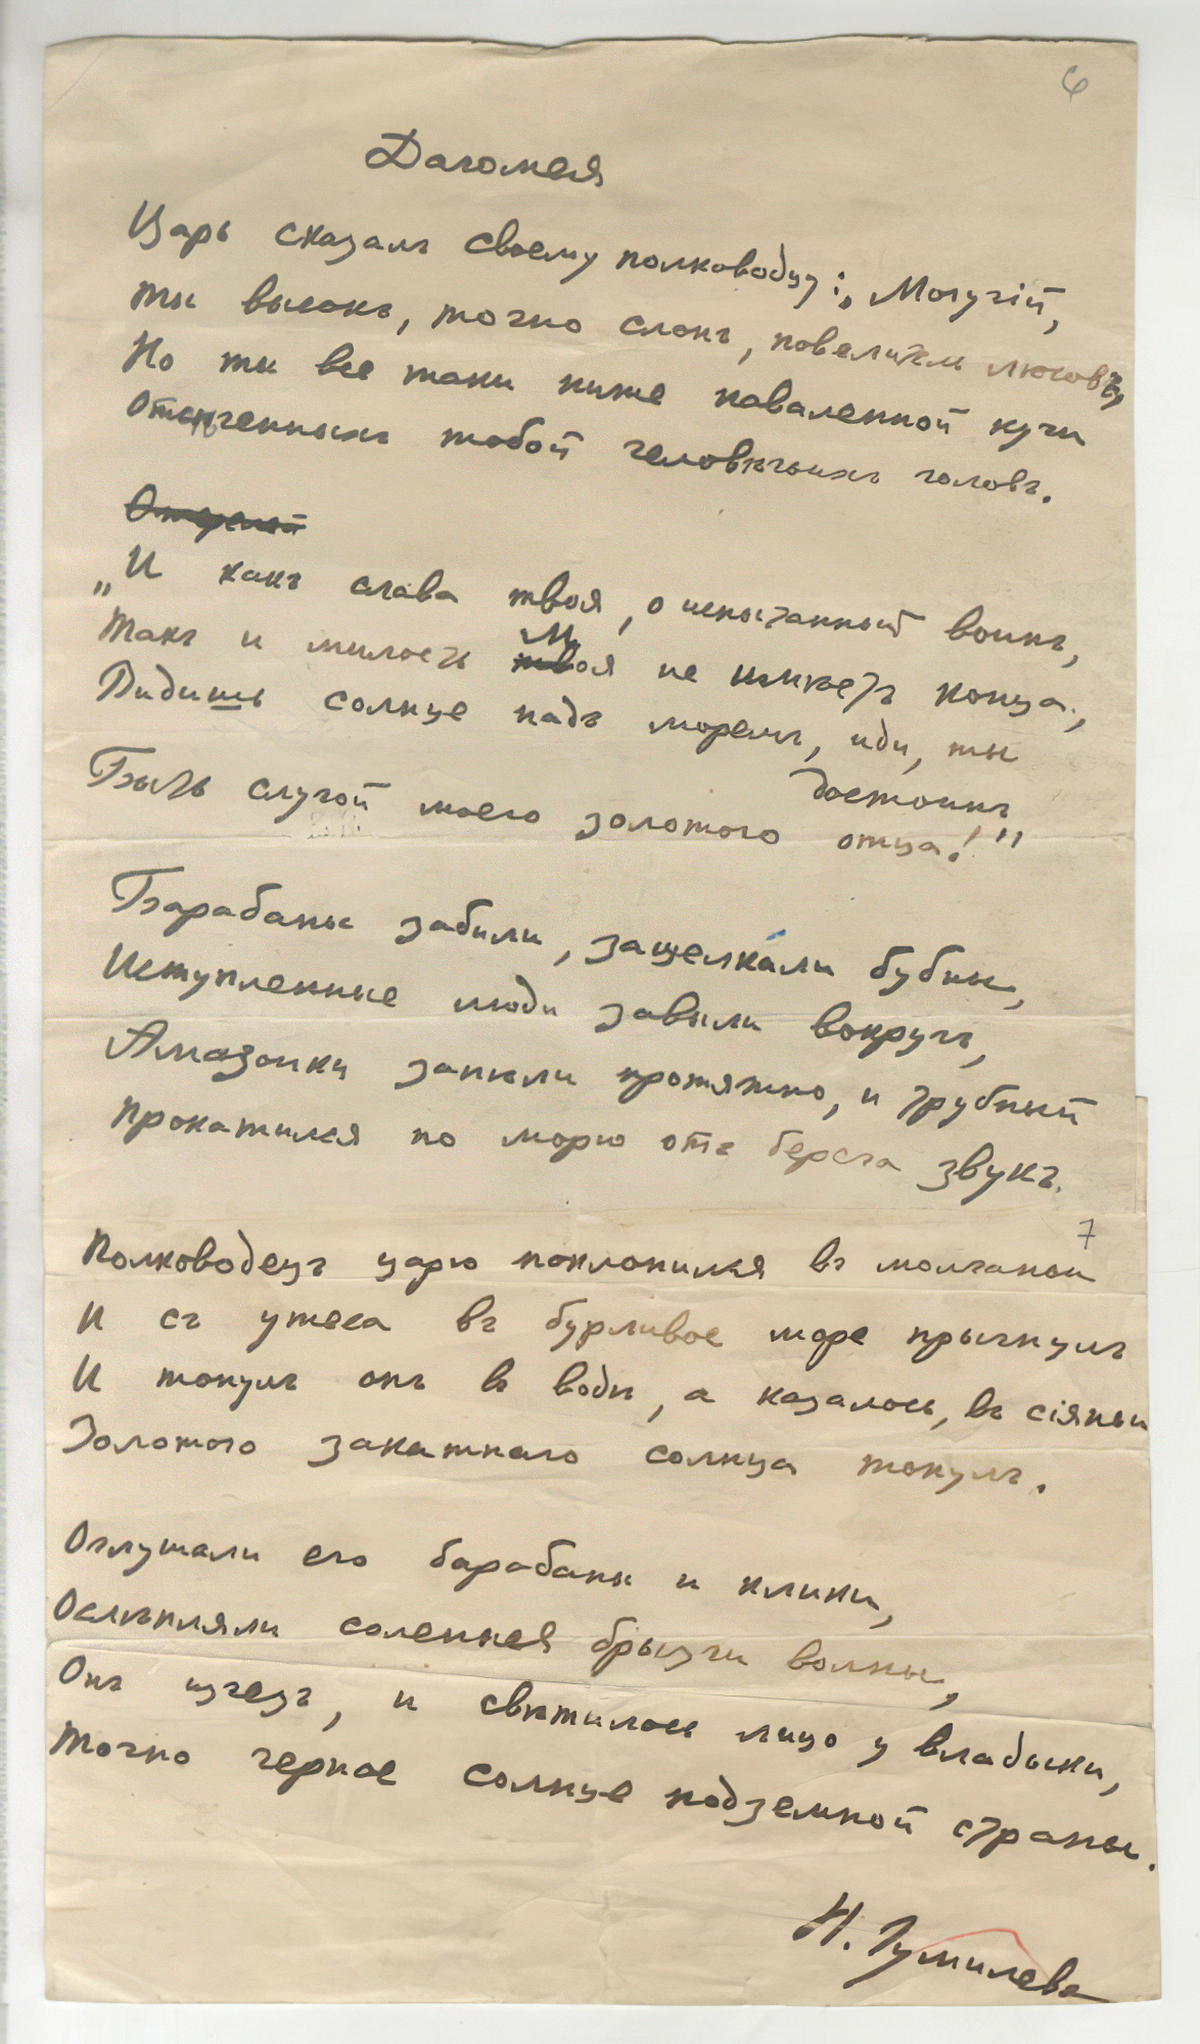 6
Дагомея
Царь сказалъ своему полководцу: „Могучій,
Ты высокъ, точно слонъ, повелитель лѣсовъ,
Но ты все таки ниже наваленной кучи
Отсѣченныхъ тобой человѣчьихъ головъ.
„И какъ слава твоя, о испытанный воинъ,
Такъ и милость моя не имѣетъ конца,
Видишь солнце надъ моремъ, иди, ты
достоинъ
Быть слугой моего золотого отца!"
Барабаны забили, защелкали бубны,
Иступленные люди завыли вокругъ,
Амазонки запѣли протяжно, и трубный
Прокатился по морю отъ берега звукъ.
7
Полководецъ царю поклонился въ молчаньи
И съ утеса въ бурливое море прыгнулъ
И тонулъ онъ в водѣ, а казалось, въ сіяньи
Золотого закатнаго солнца тонулъ.
Оглушали его барабаны и клики,
Ослѣпляли соленыя брызги волны,
Онъ изчезъ, и свѣтилось лицо у владыки,
Точно черное солнце подземной страны.
Н. Гумилевъ